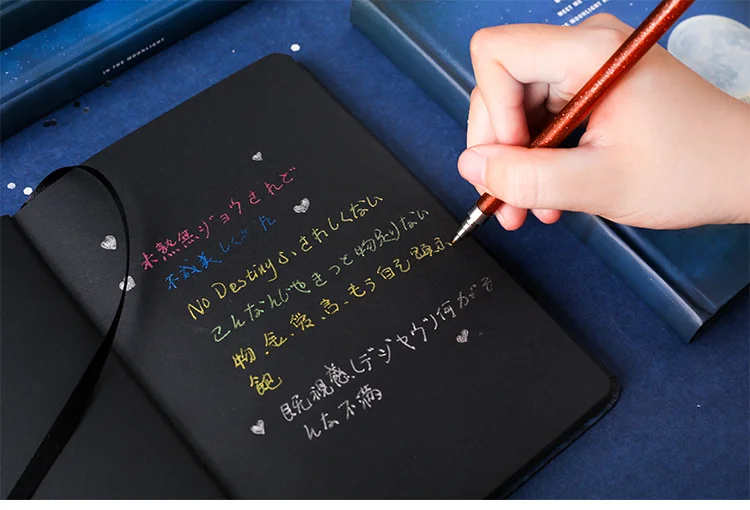 IN THE MOONLIGHT
MEET ME
IN THE MOONLIGHT
未熟無ジョウされど
美しく
No Destiny ふさわしくない
こんなんじゃきっと物足りない
物、金、愛、言、もう自己顕示
飽
既視感(デジャヴ)何がそ
んな不満